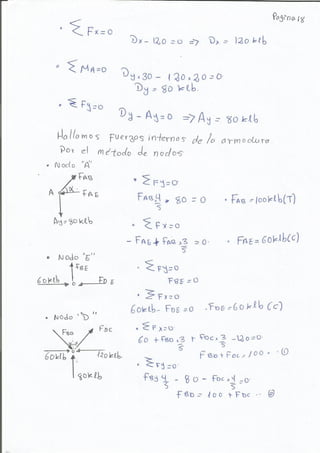 Pagina 18
• ΣFx=0
Dx - 120 = 0 => Dx = 120 klb
• ΣMA=0
Dy.30 - 120.20 = 0
Dy = 80 klb.
• ΣFy=0
Dy - Ay = 0 => Ay = 80 klb
Hallamos Fuerzas internos de la armadura
Por el método de nodos
• Nodo "A"
FAB
A α FAE
Ay=80klb
• ΣFy=0
FAB 4/5 - 80 = 0 • FAB = 100klb(T)
• ΣFx=0
- FAE + FAB.3/5 = 0. • FAE = 60klb(C)
• Nodo "E"
FBE
60klb FDE
• ΣFy=0
FBE = 0
• ΣFx=0
60klb - FDE = 0 .FDE = 60klb (C)
• Nodo "D"
FBD FDC
60klb 120klb
80klb
• ΣFx=0
60 + FBD.3/5 + FDC.3/5 - 120=0
FBD + FDC = 100 .. ①
• ΣFy=0
FBD 4/5 - 80 - FDC.4/5 = 0
FBD = 100 + FDC .. ②